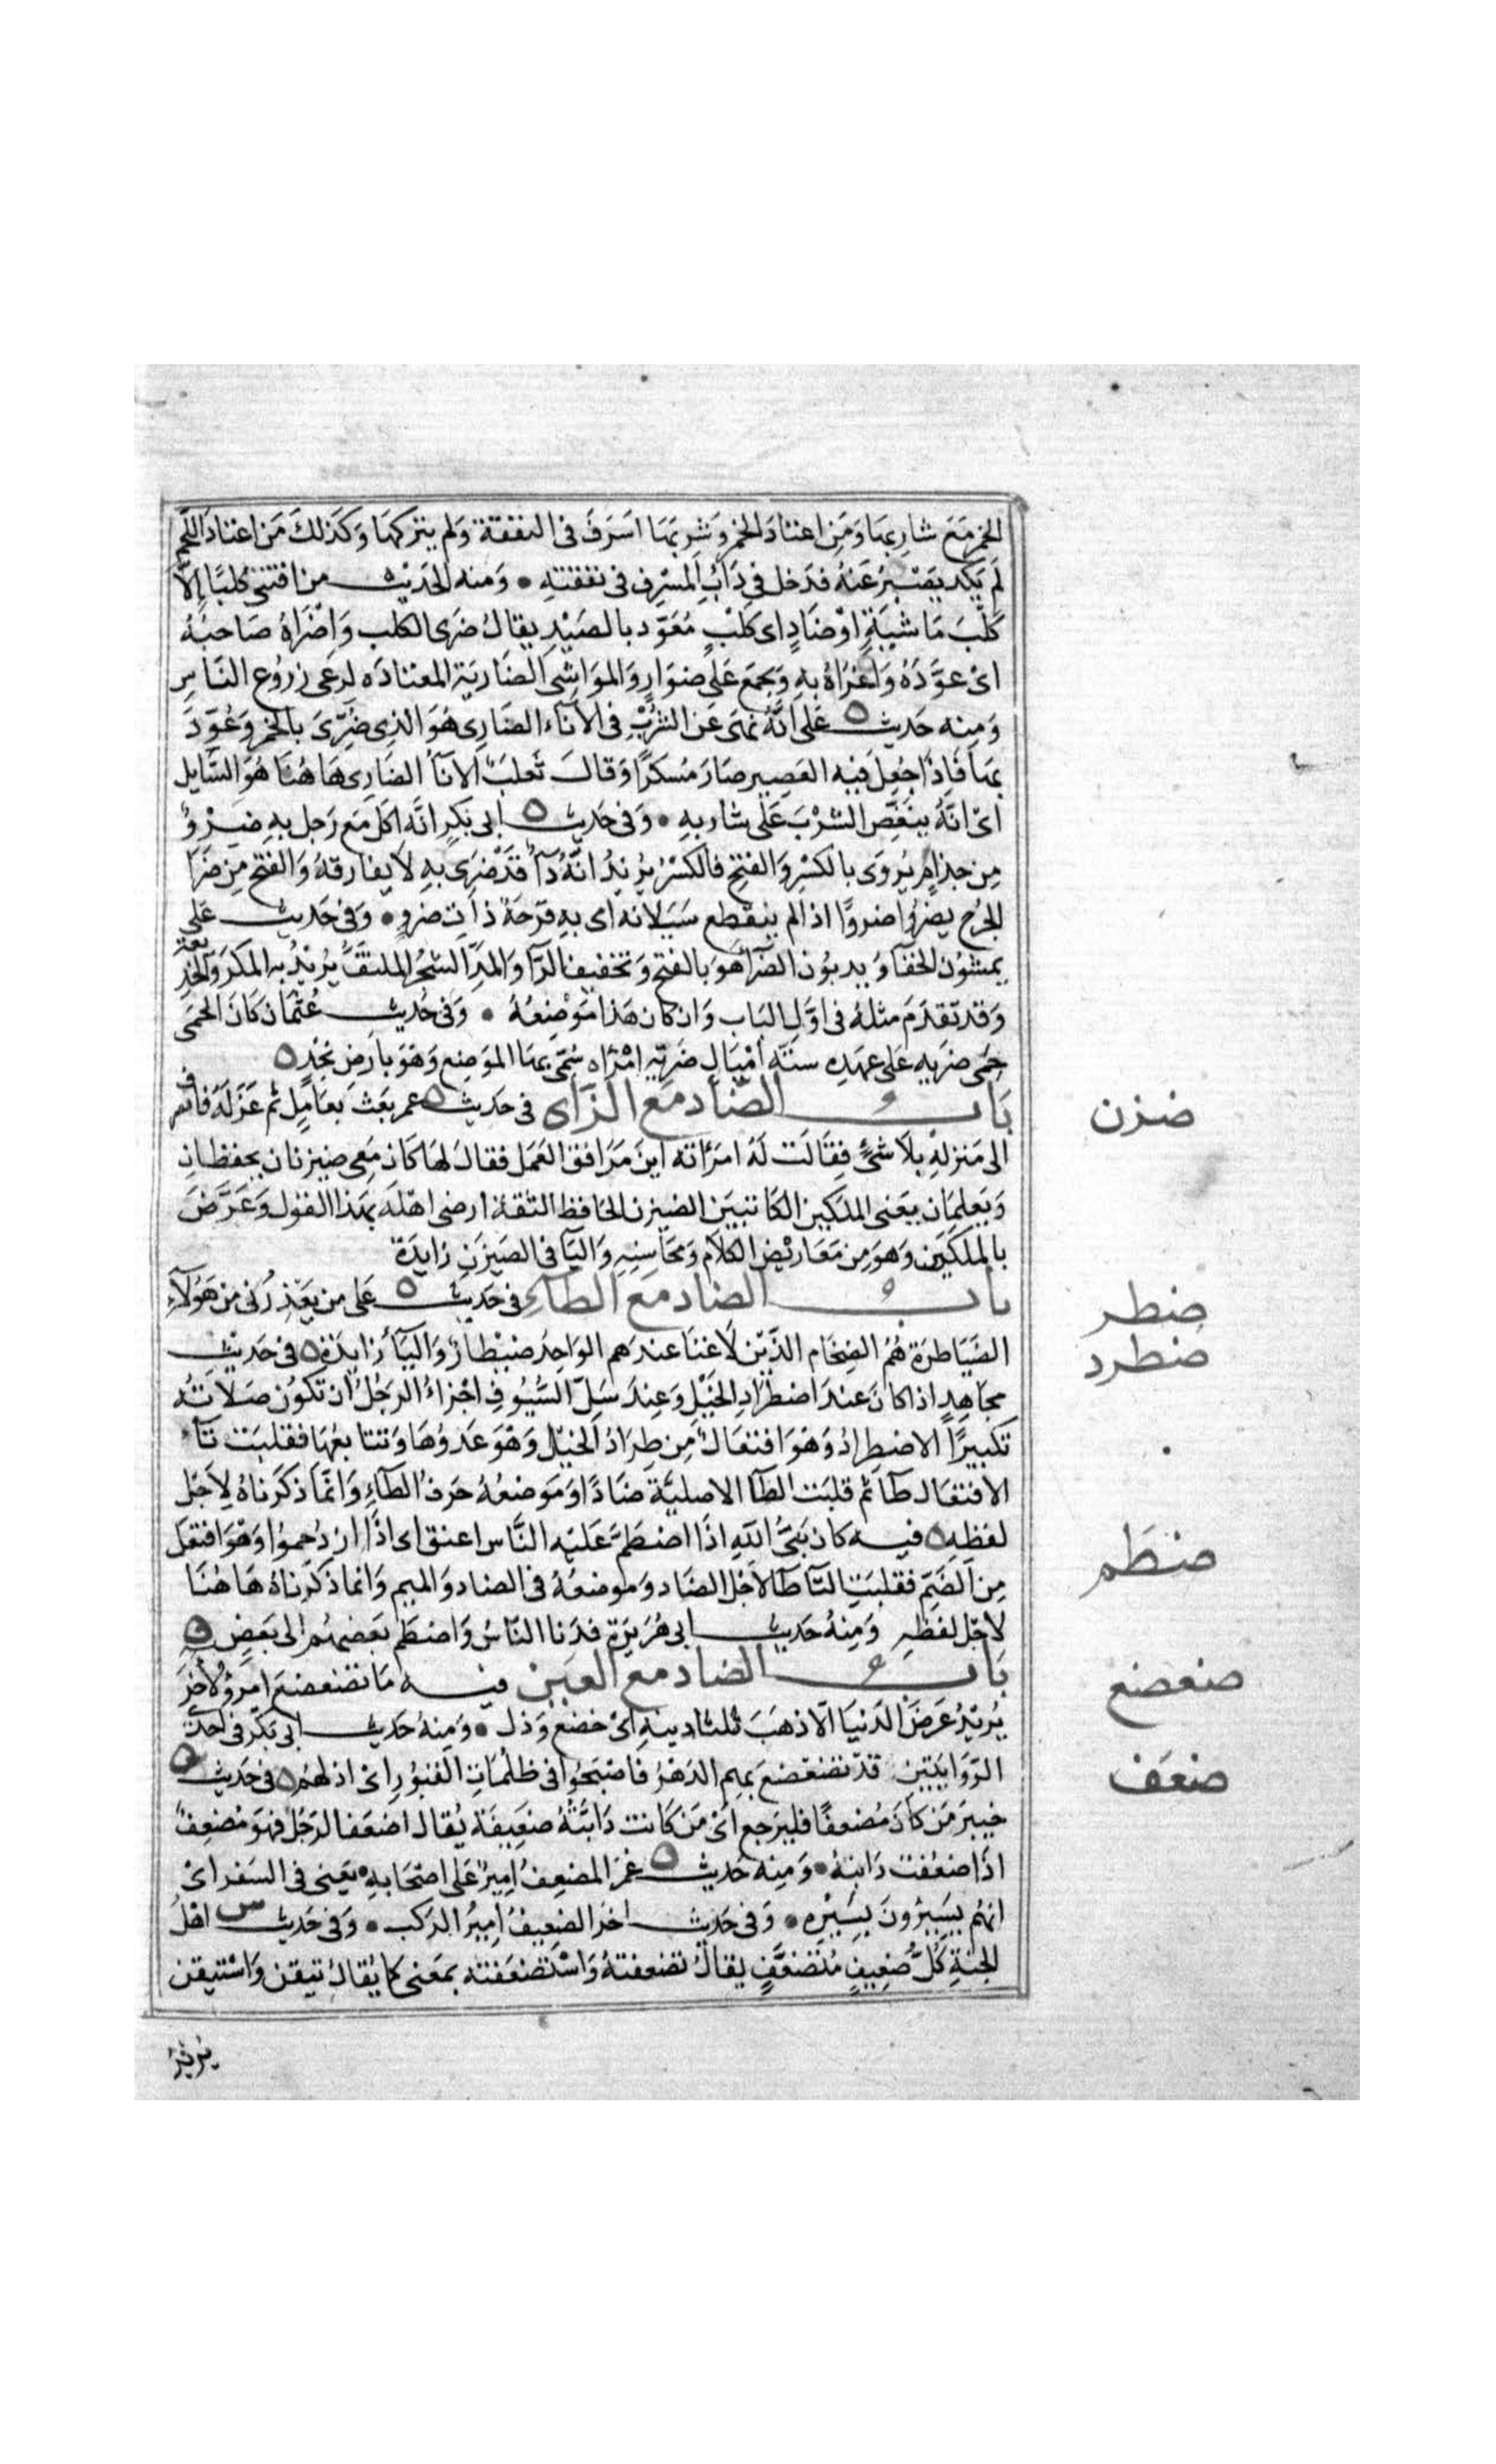 الخمر مَعَ شارِبهَا وَمَن اعتادَ الخمر وَشربَهَا اَسَرفَ فى النفقة وَلم يتركهَا وَكَذلكَ مَن اعتادَ اللحم
لَم يَكد يَصْبرُ عَنهُ فدَخل فى دَأبِ المسْرِف فى نفقتهِ • وَمنه الحَديث من اقتنى كلبًا اِلاَّ
كَلْبَ مَاشيَةٍ اوْ ضَارٍ اى كَلْبٍ مُعَوّد بالصَيْدِ يقالُ ضرى الكلب وَاضْرَاهُ صَاحبُهُ
اىْ عوَّدَهُ وَاغرَاهُ بهِ وَيجمَع عَلى ضوَارٍ وَالموَاشى الضَاريَة المعتادَه لرعى زرُوع النَّاسِ
وَمِنه حَديث ٥ عَلى انَّهُ نهَى عَن الشُرْبِ فى الآنآء الضَارِى هُوَ الذِى ضُرِّىَ بالخمر وَعُوّدَ
بهَا فَاِذَا جُعِلَ فيْه العَصِير صَارَ مُسكرًا وَقالَ ثَعلبٌ الانآُ الضَارِى هَا هُنَا هُوَ السَّايل
اىْ انَّهُ ينغّص الشُرْبَ عَلى شاربهِ • وَفى حَديث ٥ ابى بَكرٍ انَّه اكَلَ مَع رَجل بهِ ضِرْوٌ
مِن جذامٍ يُروَى بالكسْرِ وَالفتح فالكسْرُ يُريْدُ انَّهُ دَآٌ قدْ ضَرِى بهِ لاَ يفارقهُ وَالفتح مِن ضَرَا
الجُرح يضرُوا ضروًا اذا لم ينقطع سَيَلانه اى بهِ قرْحَة ذاَت ضروٍ • وَفى حَديث عَلى
يمشُوْن الخفآ وَيدبوُن الضَرآ هُوَ بالفتح وَتخفيف الرَّآ وَالمدِّ الشجُر الملتفّ يُريْدُ به المكرَ وَالخديعة
وَقد تقدَمَ مثلهُ فى اوَّل البَاب وَان كان هَذا مَوْضِعُهُ • وَفى حَديثِ عُثمَان كَان الحمى
حِمى ضريه عَلى عهَدِه ستَّه اَمْيَالٍ ضَريّه امْرَاه سُمّى بهَا الموَضِع وَهوَ بارض نجْدٍ ٥
بَاب الضَّاد مَعَ الزَّاى فى حَديث ٥ عمر بعَث بعَامِلٍ ثم عَزَلهُ فانصرف
الى مَنزلِهْ بلاَ شئٍ فقَالَت لَهُ امرَاته اينَ مَرَافق العَمل فقال لهَا كَان مَعى ضيزنان يحفظانِ
وَيَعلمَان يَعنى الملَكين الكَاتبيَن الضيزن الحَافظ الثقة ارضى اهْلَه بهَذا القول وَعَرَّضَ
بالملكَين وَهوَ مِن مَعَاريْض الكلاَم وَمحَاسِنهِ وَاليَا فى الضَيزَنِ زايدَة
باب الضاد مَعَ الطآء فى حَديث ٥ عَلى من يَعْذِرُنى مِن هَؤلآء
الضَّيَاطرَة هُمُ الضِخَام الذّيْن لاَ غنَا عندَهم الوَاحِد ضيْطَارٌ وَاليَآُ زايدَة ٥ فى حَديْث
مجَاهِدٍ اذا كانَ عندَ اضطرَادِ الخَيْل وَعِندَ سَلِّ السُّيُوفِ اجْزاءُ الرَجُلُ ان تكوُن صَلاَتُه
تكبيرًا الاضطرادُ وَهْوَ افتعَالٌ مِن طِرَادُ الخيْل وَهْوَ عَدوُهَا وَتتابعُهَا فقلبَت تَآء
الافتعَال طآ ثم قلبَت الطآ الاصليّة ضَادًا وَمَوضعُهُ حَرفُ الطآءِ وَانّمَا ذكَرناهُ لِاَجْلِ
لفظهِ ٥ فيه كان نَبىُّ اللّه اذَا اضطَمَّ عَليَه النَّاس اعنق اى اذَا ازدُحموا وَهْوَ افتعَل
مِنَ الضَمّ فقلبَتِ التآ طآ لاَجْل الضَاد وَموضعُهُ فى الضاد وَالميم وَانما ذكرناهُ هَا هُنَا
لاجْل لفظِهِ وَمِنهُ حَديث ابى هُرَيرَة فدَنا النّاسُ وَاضطَّم بَعضهُم الى بَعضٍ ٥
بَاب الضاد مع العَين فيه مَا تضعضعَ امرؤٌ لاخَرَ
يُريْدُ عَرَضَ الدُنيَا الاّ ذهَبَ ثلثا دينهِ اىْ خضع وَذل • وَمِنهُ حَديث ابى بَكْر فى احدَى
الرّوَايتَين قدْ تضعْضعَ بهِم الدَهْرُ فَاصْبَحُوا فى ظلُمَاتِ القبُوْرِ اىْ اذلهُمْ ٥ فى حَديث ٥
خيبرَ مَن كاَن مُضعفًا فليرَجع اىْ مَن كَانت دَابَّتُهُ ضعِيفَة يُقال اضعَفَ الرَجُلُ فهوَ مُضعِفٌ
اذَا ضعُفت دَابتهُ • وَمِنه حَديث ٥ عمَر المضعِفُ امِيرٌ عَلى اصْحَابهِ يَعنى فى السَفر اىْ
انهُم يسَيرُونَ بسَيْرِه • وَفى حَديث اخرَ الضعِيفُ امِيرُ الركب • وَفى حَديث س اهْلُ
الجنةِ كلُّ ضعِيفٍ مُتضَعَّفٍ يقالُ تضعفتهُ وَاسْتَضعَفته بمعَنى كما يُقالُ تيقن وَاسْتيقن
يُريْدُ
ضزن
ضطر
ضطرد
ضطم
ضعضع
ضعف